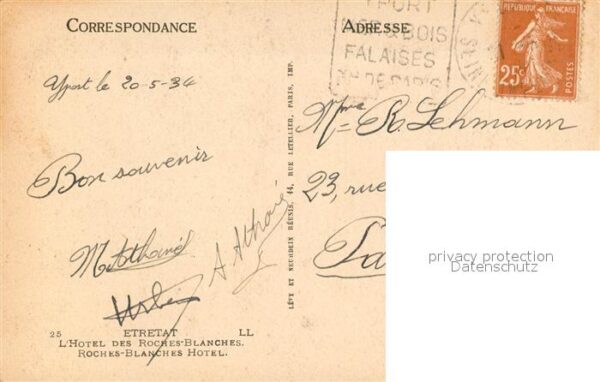 CORRESPONDANCE
ADRESSE
YPORT
MER & BOIS
FALAISES
DE PARIS
REPUBLIQUE FRANÇAISE
25c
POSTES
Yport le 20-5-34
Mme R. Lehmann
Bon souvenir
23, rue
LÉVY ET NEURDEIN RÉUNIS, 44, RUE LETELLIER, PARIS, IMP.
privacy protection
Datenschutz
25 ETRETAT LL
L'HOTEL DES ROCHES-BLANCHES.
ROCHES-BLANCHES HOTEL.